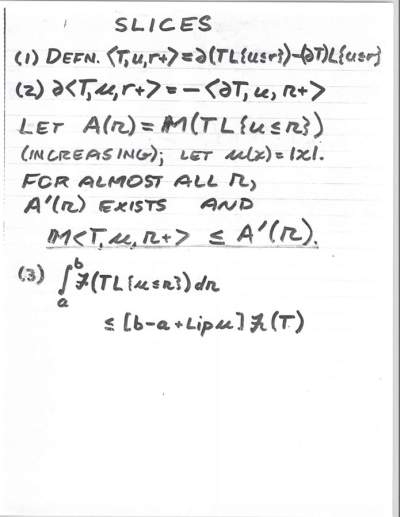 SLICES
(1) DEFN. <T,u,r+> = ∂(TL{u≤r})-(∂T)L{u≤r}
(2) ∂<T,u,r+> = - <∂T, u, r+>
LET A(r) = M(TL{u≤r})
(INCREASING); LET u(x)=|x|.
FOR ALMOST ALL r,
A'(r) EXISTS AND
M<T,u,r+> ≤ A'(r).
(3) ∫ₐᵇ F(TL{u≤r})dr
≤ [b-a+Lip u] F(T)